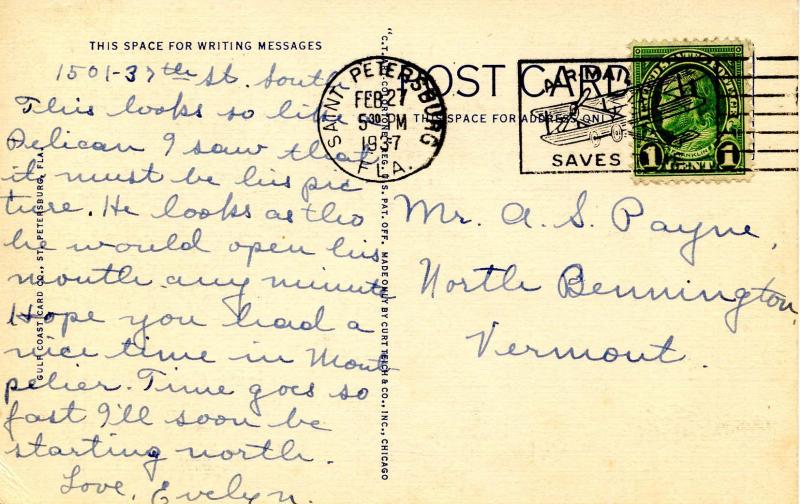 THIS SPACE FOR WRITING MESSAGES
1501-37th St. South
This looks so like a
Pelican I saw that
it must be his pic
ture. He looks as tho
he would open his
mouth any minute
Hope you had a
nice time in Mont
pelier. Time goes so
fast I'll soon be
starting north.
Love, Evelyn.
GULF COAST CARD CO., ST. PETERSBURG, FLA.
MADE ONLY BY CURT TEICH & CO., INC., CHICAGO
REG. U.S. PAT. OFF.
POST CARD
THIS SPACE FOR ADDRESS ONLY
SAINT PETERSBURG
FEB 27
5 30 PM
1937
FLA.
AIR MAIL
SAVES
1 CENT 1
FRANKLIN
Mr. A. S. Payne,
North Bennington,
Vermont.